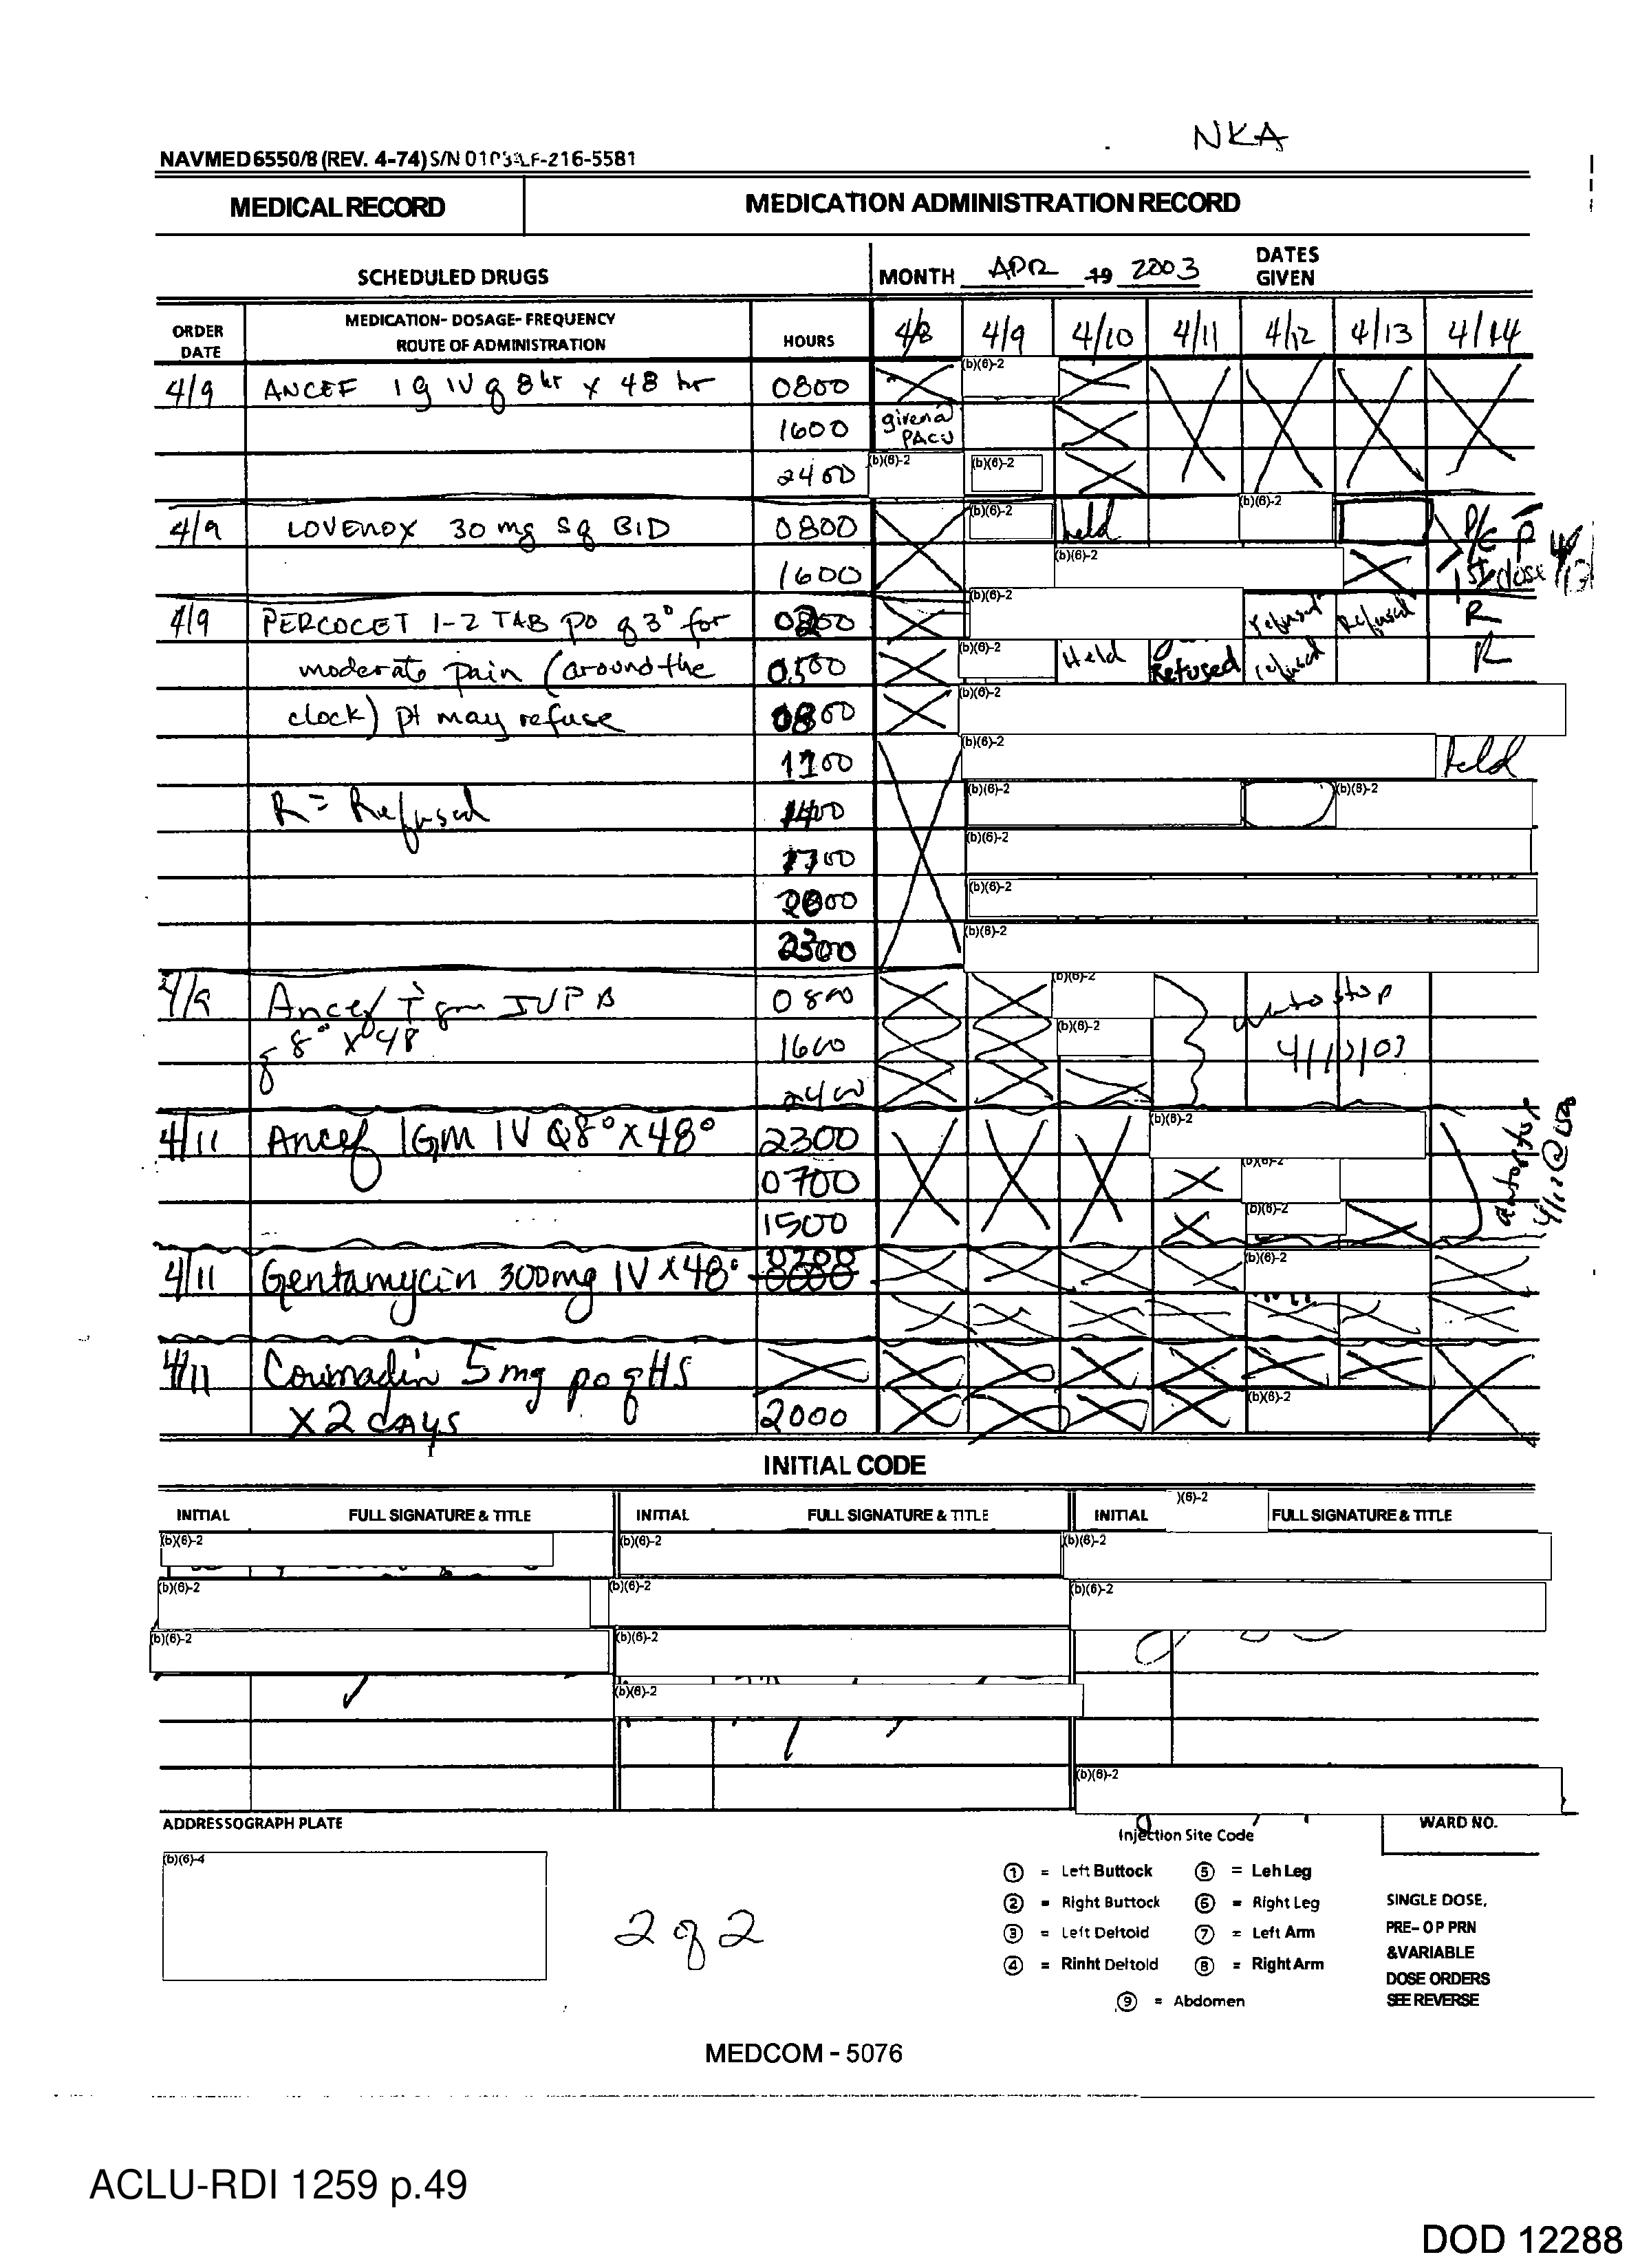 NKA
NAVMED 6550/8 (REV. 4-74) S/N LF-216-5581
MEDICAL RECORD
MEDICATION ADMINISTRATION RECORD
SCHEDULED DRUGS
MONTH APR 19 2003
DATES GIVEN
ORDER DATE
MEDICATION- DOSAGE- FREQUENCY
ROUTE OF ADMINISTRATION
HOURS
4/8 4/9 4/10 4/11 4/12 4/13 4/14
4/9 ANCEF 1g IV q 8hr x 48 hr 0800 (b)(6)-2
1600 given PACU
2400 (b)(6)-2 (b)(6)-2
4/9 LOVENOX 30 mg sq BID 0800 (b)(6)-2 held (b)(6)-2 D/C p̄
1600 (b)(6)-2 1st dose 4/13
4/9 PERCOCET 1-2 TAB po q 3° for 0200 (b)(6)-2 refused Refused R
moderate pain (around the 0500 (b)(6)-2 Held Refused refused R
clock) pt may refuse 0800 (b)(6)-2
1100 (b)(6)-2 held
R = Refused 1400 (b)(6)-2 (b)(6)-2
1700 (b)(6)-2
2000 (b)(6)-2
2300 (b)(6)-2
4/9 Ancef T gm IVPB 0800 (b)(6)-2 auto stop
q 8° x 48 1600 (b)(6)-2
2400
4/11 Ancef 1GM IV Q8° x 48° 2300 (b)(6)-2 autostop
0700 (b)(6)-2
1500 (b)(6)-2
4/11 Gentamycin 300mg IV x 48° 0200 (b)(6)-2
4/11 Coumadin 5 mg po qHS
x 2 days 2000 (b)(6)-2
INITIAL CODE
INITIAL FULL SIGNATURE & TITLE INITIAL FULL SIGNATURE & TITLE INITIAL )(6)-2 FULL SIGNATURE & TITLE
(b)(6)-2 (b)(6)-2 (b)(6)-2
(b)(6)-2 (b)(6)-2 (b)(6)-2
(b)(6)-2 (b)(6)-2
(b)(6)-2
(b)(6)-2
ADDRESSOGRAPH PLATE
(b)(6)-4
2 of 2
Injection Site Code
WARD NO.
① = Left Buttock ⑤ = Leh Leg
② = Right Buttock ⑥ = Right Leg
③ = Left Deltoid ⑦ = Left Arm
④ = Rinht Deltoid ⑧ = Right Arm
⑨ = Abdomen
SINGLE DOSE,
PRE- OP PRN
&VARIABLE
DOSE ORDERS
SEE REVERSE
MEDCOM - 5076
ACLU-RDI 1259 p.49
DOD 12288